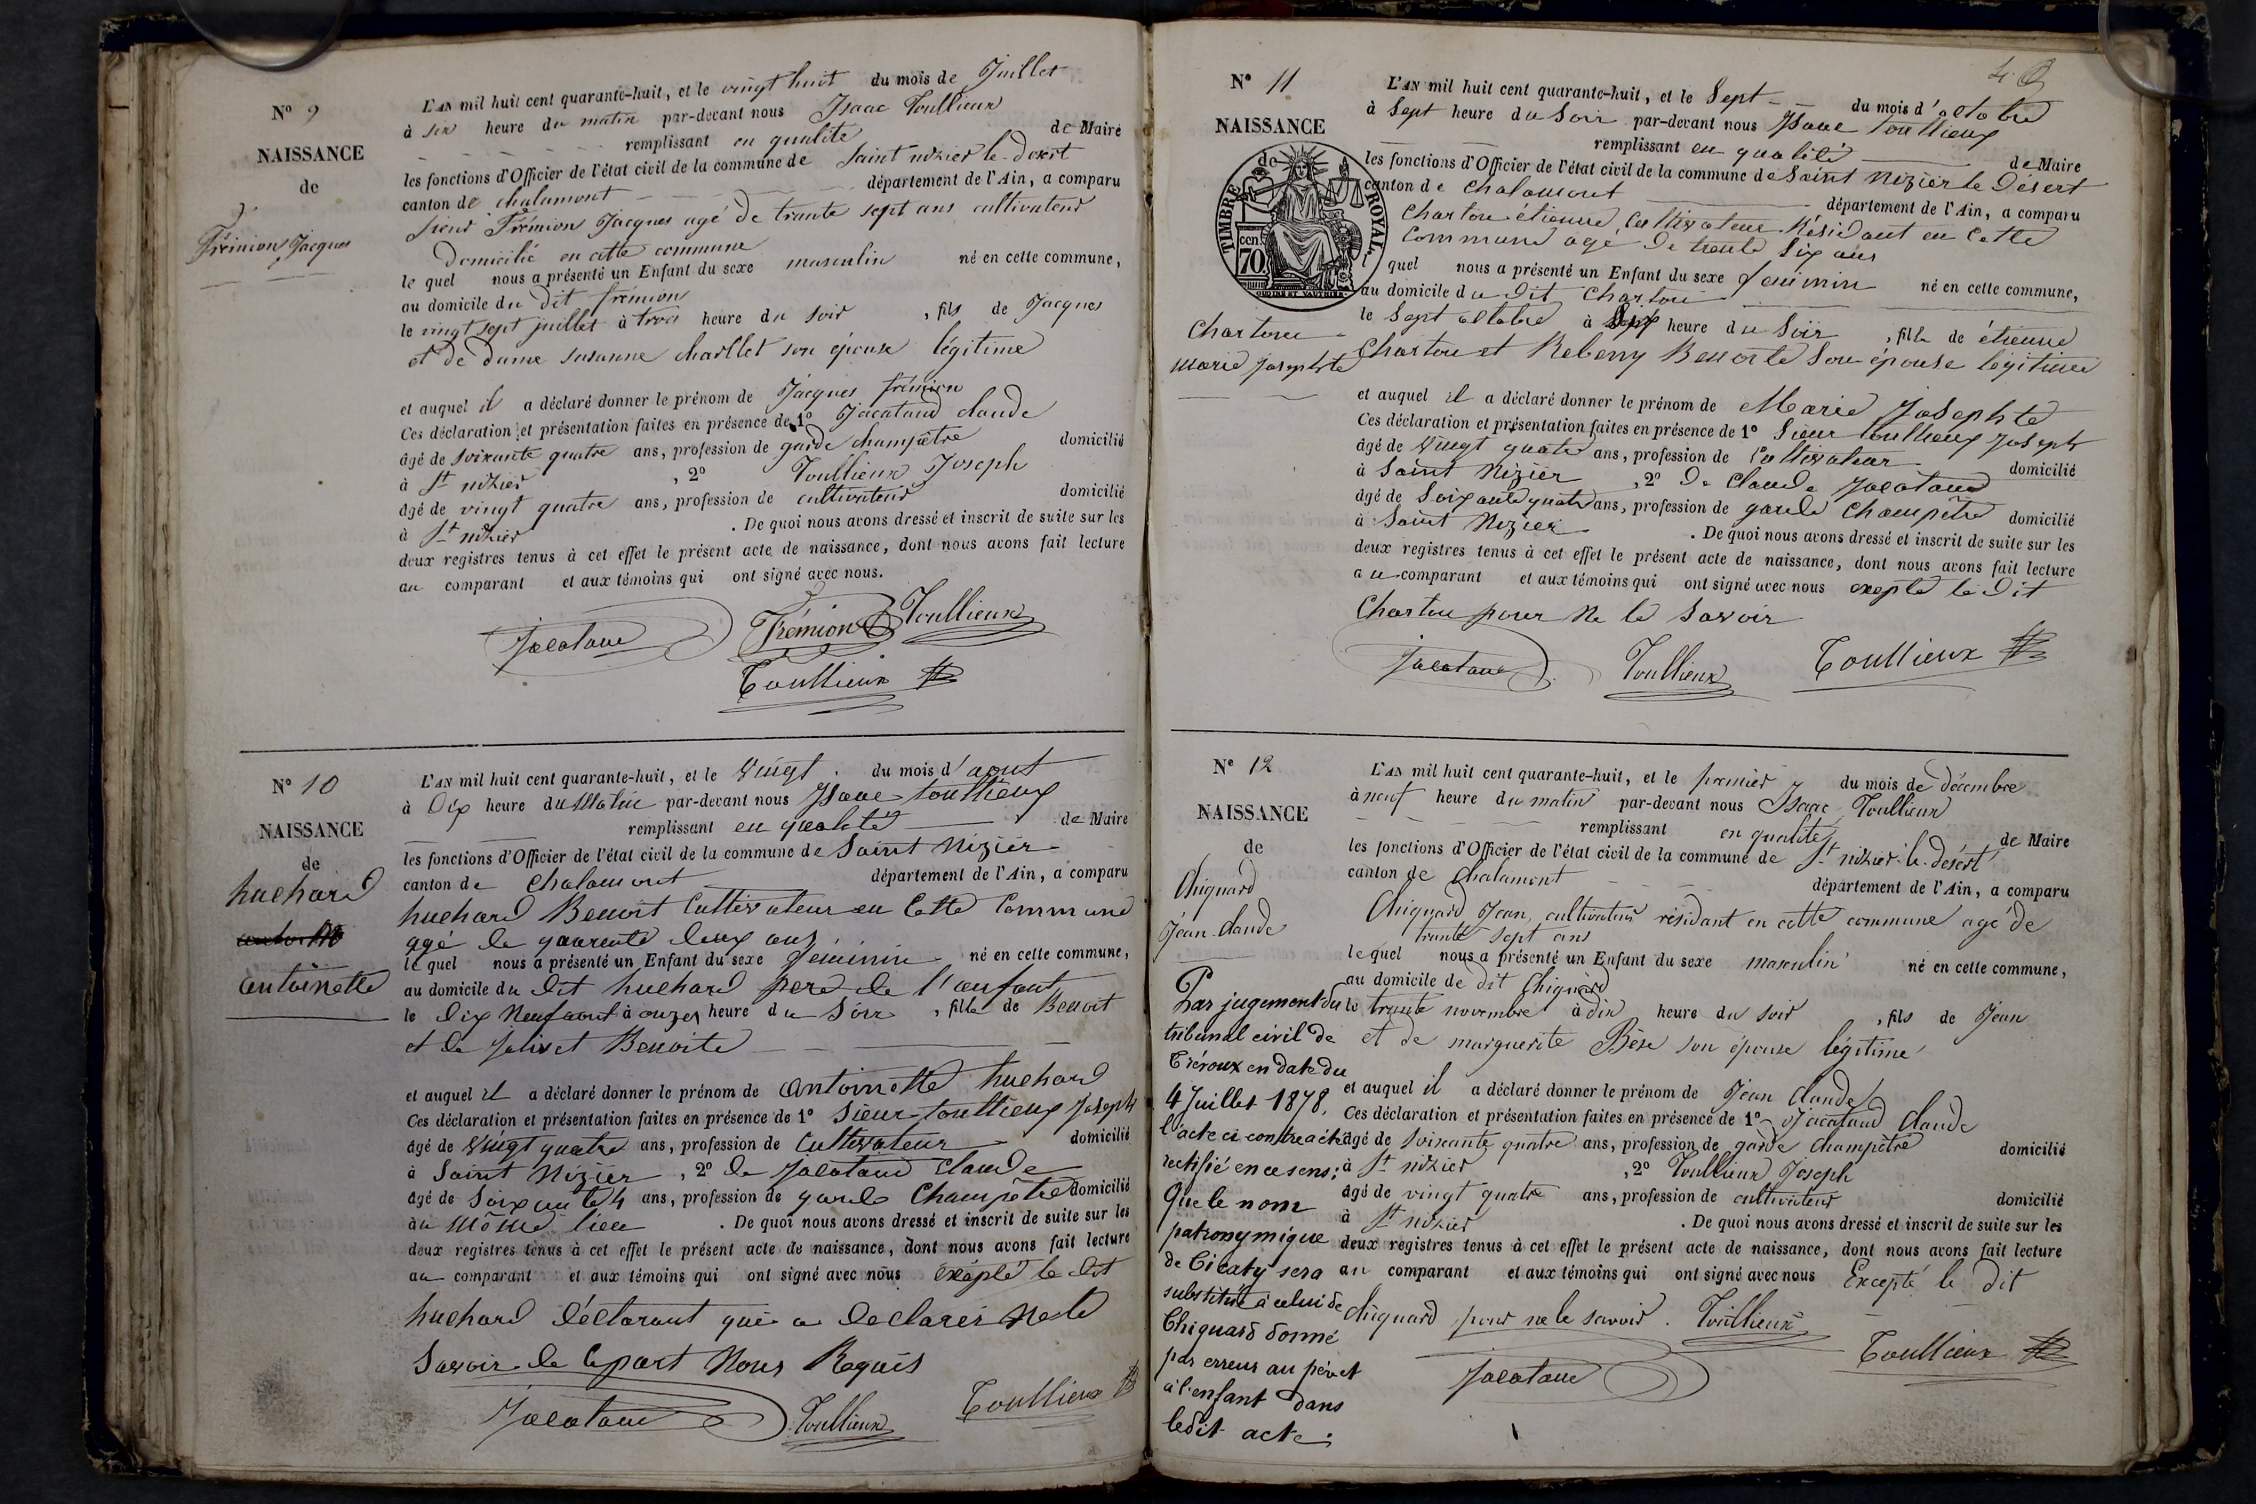 N° 9
NAISSANCE
de
Frémion Jacques
L'AN mil huit cent quarante-huit, et le vingt huit du mois de Juillet
à six heure du matin par-devant nous Isaac Toullieux
remplissant en qualité de Maire
les fonctions d'Officier de l'état civil de la commune de Saint nizier le desert
canton de chalamont département de l'Ain, a comparu
sieur Frémion Jacques agé de trante sept ans cultivateur
domicilié en cette commune
le quel nous a présenté un Enfant du sexe masculin né en cette commune,
au domicile du dit frémion
le vingt sept juillet à trois heure du soir , fils de Jacques
et de dame susanne charllet son épouse légitime
et auquel il a déclaré donner le prénom de Jacques frémion
Ces déclaration et présentation faites en présence de 1° Jacataud claude
âgé de soixante quatre ans, profession de garde champêtre domicilié
à St nizier , 2° Toullieux Joseph
âgé de vingt quatre ans, profession de cultivateur domicilié
à St nizier . De quoi nous avons dressé et inscrit de suite sur les
deux registres tenus à cet effet le présent acte de naissance, dont nous avons fait lecture
au comparant et aux témoins qui ont signé avec nous.
Jacataud Frémion Toullieux
Toullieux
N° 10
NAISSANCE
de
huchard
antoinette
L'AN mil huit cent quarante-huit, et le Vingt du mois d'aout
à Dix heure du Matin par-devant nous Isaac toullieux
remplissant en qualité de Maire
les fonctions d'Officier de l'état civil de la commune de Saint Nizier
canton de Chalamont département de l'Ain, a comparu
huchard Benoit Cultivateur en Cette Commune
agé de quarente deux ans
le quel nous a présenté un Enfant du sexe féminin né en cette commune,
au domicile du dit huchard pere de l'enfant
le dix Neuf aout à onzes heure du Soir , fille de Benoit
et de Jolivet Benoite
et auquel il a déclaré donner le prénom de antoinette huchard
Ces déclaration et présentation faites en présence de 1° Sieur toullieux Joseph
âgé de Vingt quatre ans, profession de Cultivateur domicilié
à Saint Nizier , 2° de Jacataud Claude
âgé de Soixante 4 ans, profession de garde Champêtre domicilié
au Même lieu . De quoi nous avons dressé et inscrit de suite sur les
deux registres tenus à cet effet le présent acte de naissance, dont nous avons fait lecture
au comparant et aux témoins qui ont signé avec nous exépté le dit
huchard déclarant qui a declarer Ne le
Savoir de Cepart Nous Requis
Jacataud Toullieux Toullieux
N° 11
NAISSANCE
de
TIMBRE ROYAL.
70 cen
Charton
marie Josephte
L'AN mil huit cent quarante-huit, et le Sept du mois d'octobre
à Sept heure du Soir par-devant nous Isaac toullieux
remplissant en qualité de Maire
les fonctions d'Officier de l'état civil de la commune de Saint Nizier le Désert
canton de Chalamont département de l'Ain, a comparu
Charton étienne, Cultivateur, Résidant en Cette
Commune agé de trente Six ans
l quel nous a présenté un Enfant du sexe feminin né en cette commune,
au domicile du dit Charton
le Sept octobre à Six heure du Soir , fille de étienne
Charton et Benoite Son épouse légitime
et auquel il a déclaré donner le prénom de Marie Josephte
Ces déclaration et présentation faites en présence de 1° Sieur toullieux Joseph
âgé de Vingt quatre ans, profession de Cultivateur domicilié
à Saint Nizier , 2° de Claude Jacataud
âgé de Soixante quatre ans, profession de garde Champêtre domicilié
à Saint Nizier . De quoi nous avons dressé et inscrit de suite sur les
deux registres tenus à cet effet le présent acte de naissance, dont nous avons fait lecture
au comparant et aux témoins qui ont signé avec nous exepté le dit
Charton pour Ne le Savoir
Jacataud Toullieux Toullieux
N° 12
NAISSANCE
de
Chiquard
Jean claude
Par jugement du
tribunal civil de
Trévoux en date du
4 Juillet 1878,
l'acte ci contre a été
rectifié en ce sens:
Que le nom
patronymique
de Cicaty sera
substitué à celui de
Chiquard donné
par erreur au père et
à l'enfant dans
ledit acte.
L'AN mil huit cent quarante-huit, et le premier du mois de décembre
à neuf heure du matin par-devant nous Isaac Toullieux
remplissant en qualité de Maire
les fonctions d'Officier de l'état civil de la commune de St nizier le désert
canton de Chalamont département de l'Ain, a comparu
Chiquard Jean, cultivateur résidant en cette commune agé de
trante sept ans
le quel nous a présenté un Enfant du sexe masculin né en cette commune,
au domicile de dit Chiquard
le trante novembre à dix heure du soir , fils de Jean
et de marguerite Bèse son épouse légitime
et auquel il a déclaré donner le prénom de Jean Claude
Ces déclaration et présentation faites en présence de 1° Jacataud Claude
âgé de soixante quatre ans, profession de garde champêtre domicilié
à St nizier , 2° Toullieux Joseph
âgé de vingt quatre ans, profession de cultivateur domicilié
à St nizier . De quoi nous avons dressé et inscrit de suite sur les
deux registres tenus à cet effet le présent acte de naissance, dont nous avons fait lecture
au comparant et aux témoins qui ont signé avec nous Excepté le dit
chiquard pour ne le savoir. Toullieux
Jacataud Toullieux